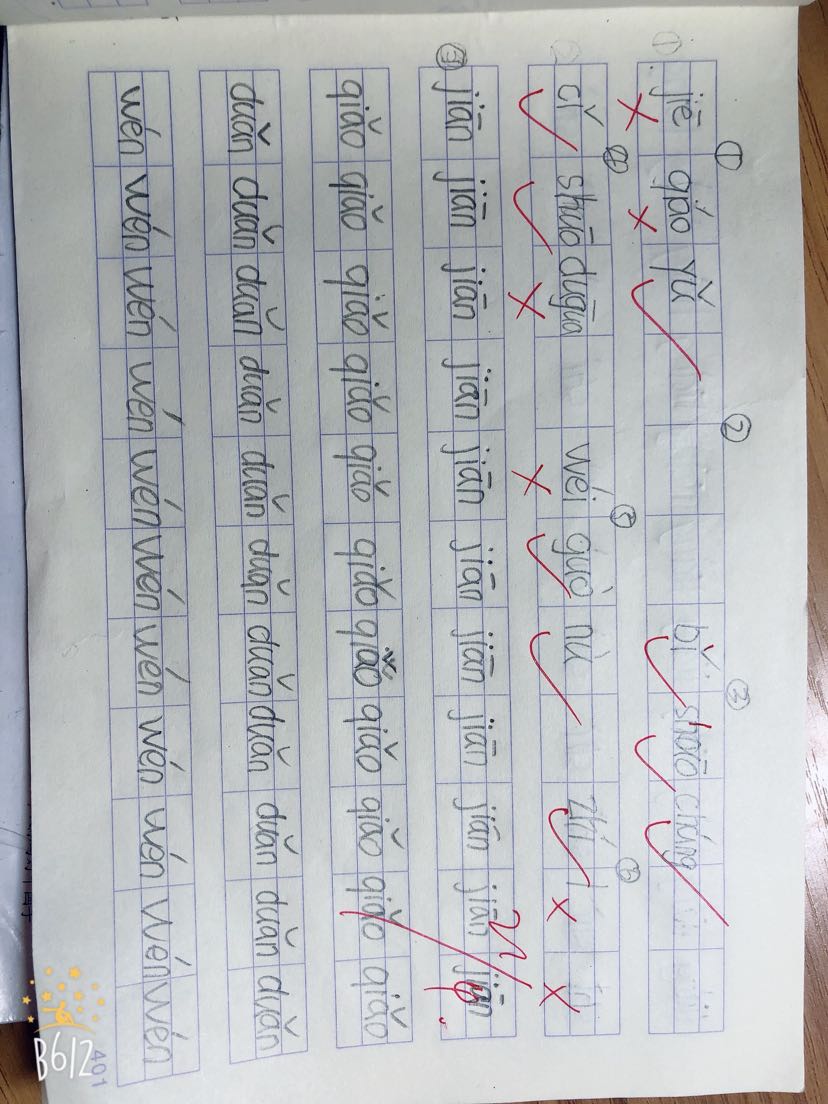 ① ② ③
① jiē gáo yǔ bǐ shāo cháng
④ ⑤ ⑥
cǐ shuō wéi guò nù zhí
③ jiān jiān jiān jiān jiān jiān jiān jiān jiān jiān jiān
qiǎo qiǎo qiǎo qiǎo qiǎo qiǎo qiǎo qiǎo qiǎo qiǎo qiǎo
duǎn duǎn duǎn duǎn duǎn duǎn duǎn duǎn duǎn duǎn duǎn
wén wén wén wén wén wén wén wén wén wén wén
401
B612